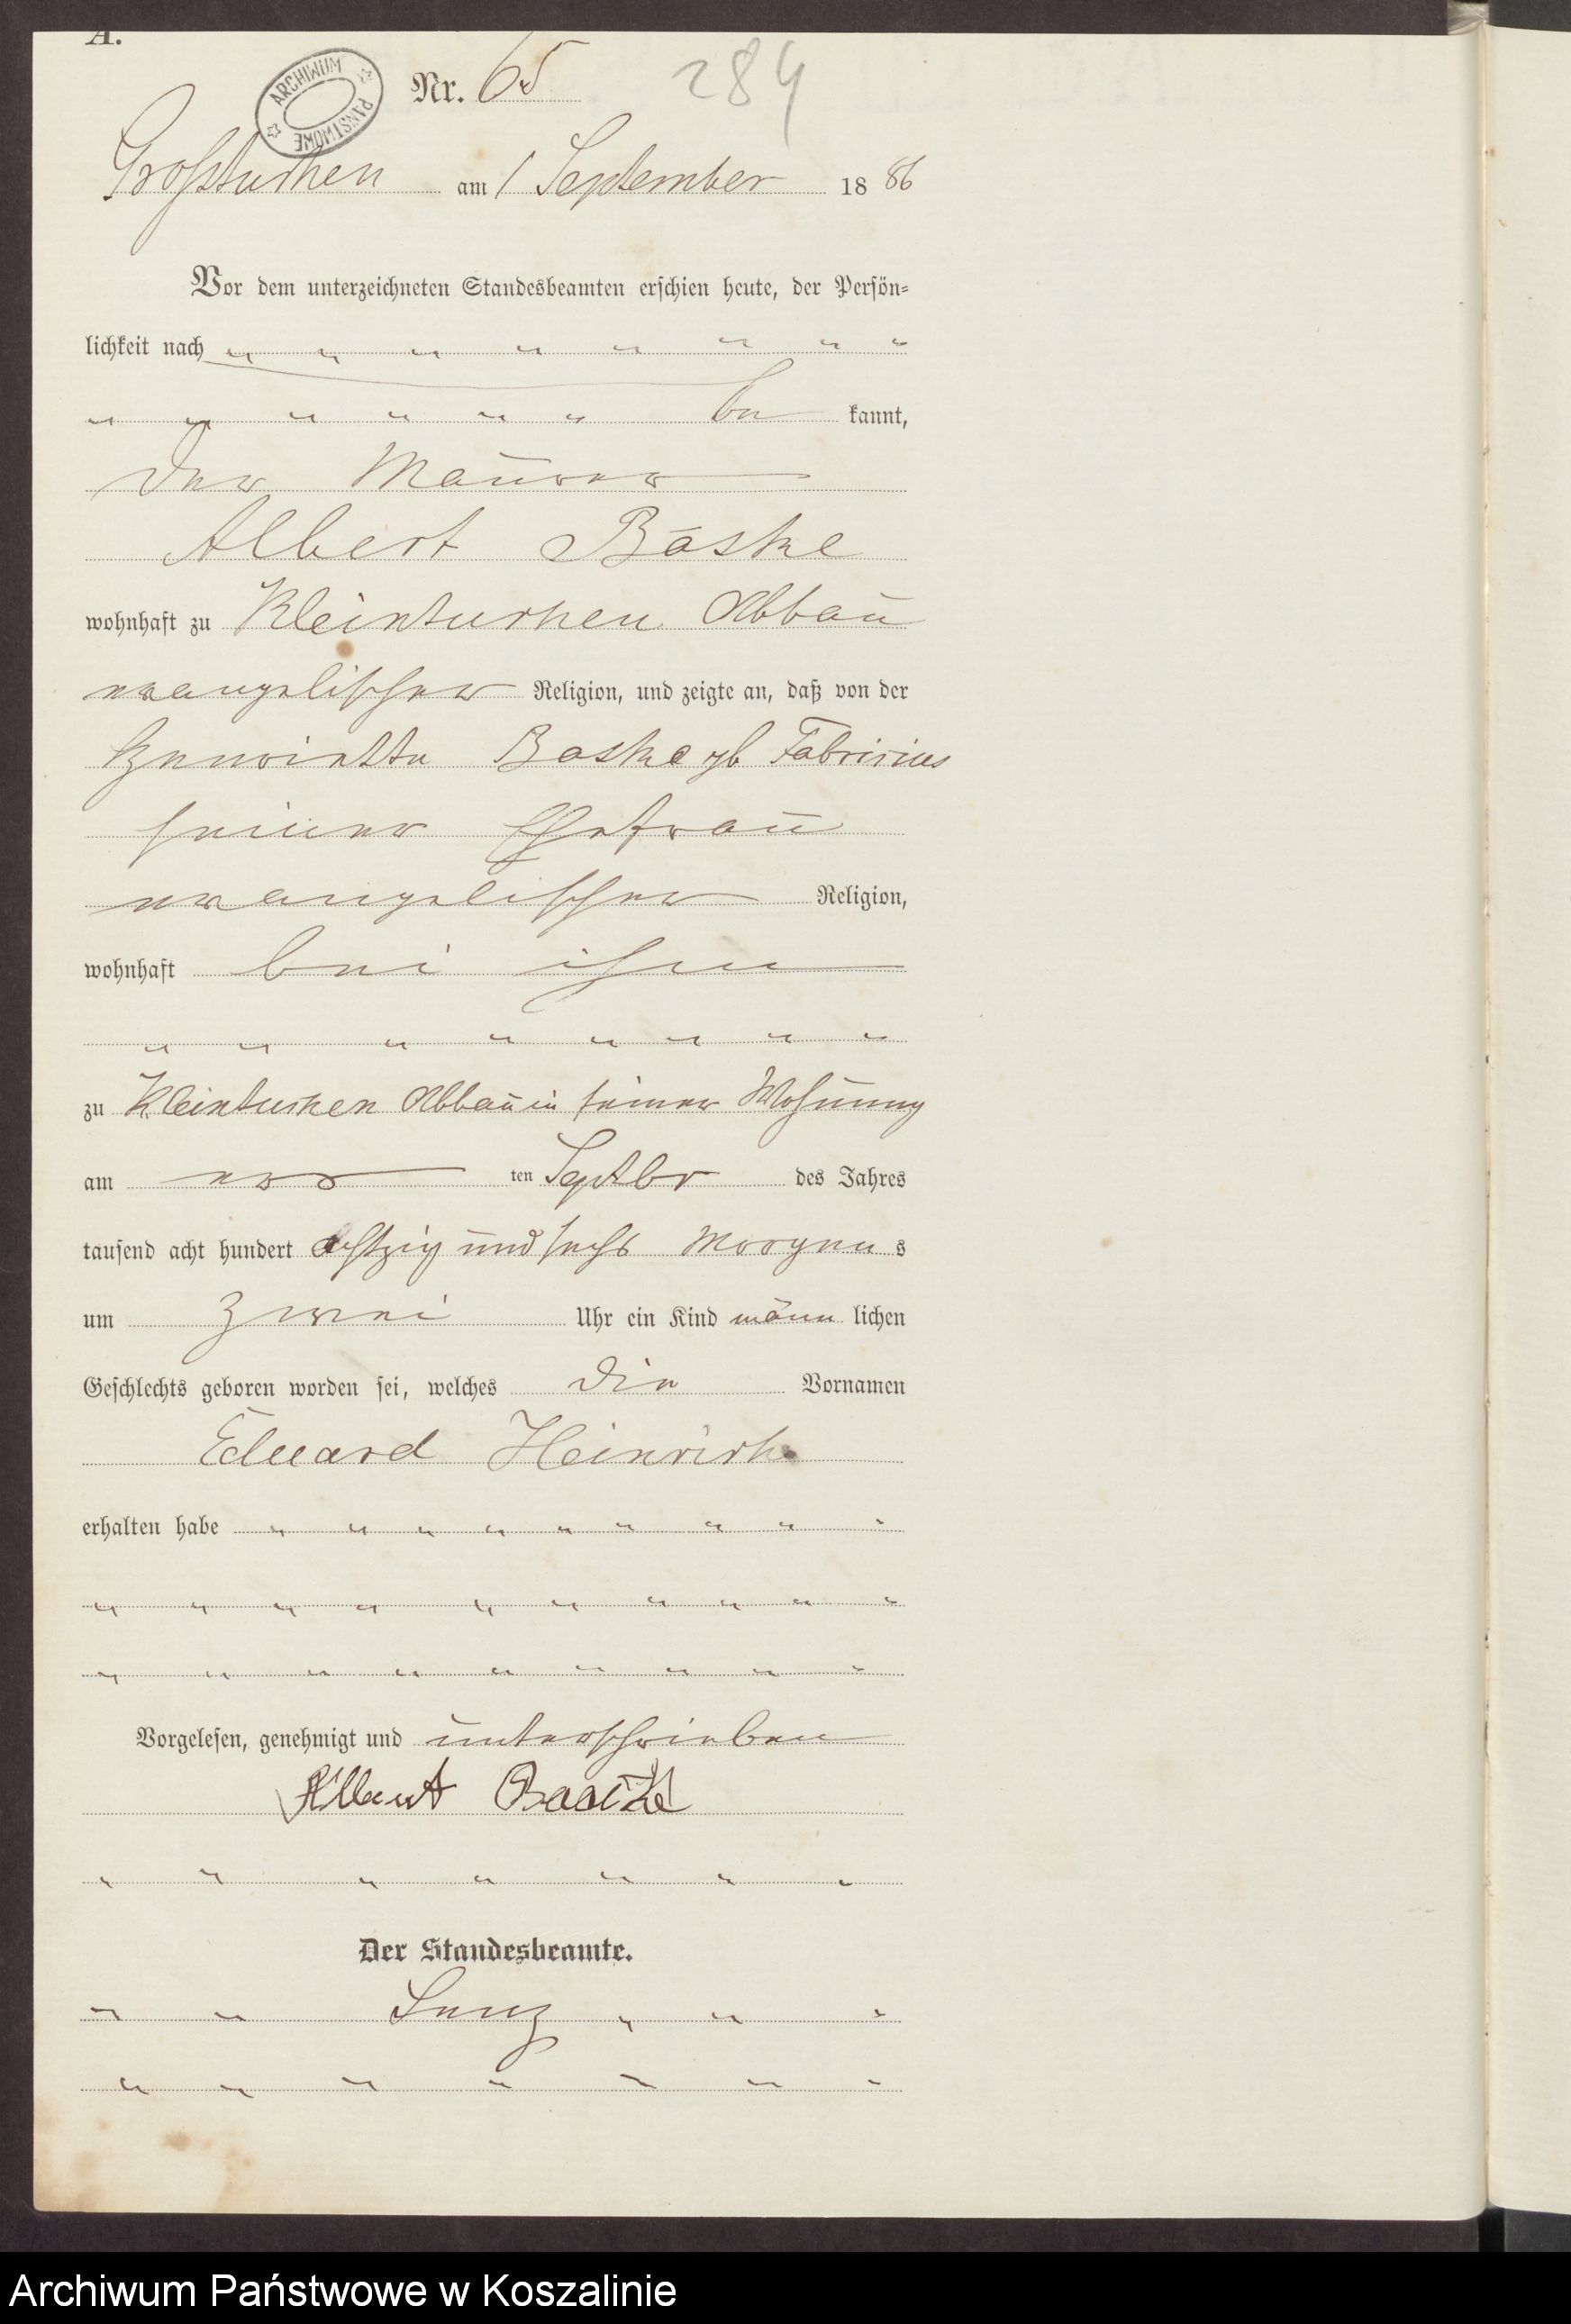 A.
ARCHIWUM PAŃSTWOWE
Nr. 65 284
Großtuchen am 1 September 1886
Vor dem unterzeichneten Standesbeamten erschien heute, der Persön-
lichkeit nach " " " " " " " "
" " " " " " be kannt,
der Maurer
Albert Baske
wohnhaft zu Kleintuchen Abbau
evangelischer Religion, und zeigte an, daß von der
Henriette Baske gb Fabricius
seiner Ehefrau
evangelischer Religion,
wohnhaft bei ihm
" " " " " " " "
zu Kleintuchen Abbau in seiner Wohnung
am ten Septbr des Jahres
tausend acht hundert achtzig und sechs Morgens
um zwei Uhr ein Kind männlichen
Geschlechts geboren worden sei, welches die Vornamen
Eduard Heinrich
erhalten habe " " " " " " " " "
" " " " " " " " " "
" " " " " " " " "
Vorgelesen, genehmigt und unterschrieben
Albert Baaske
" " " " " " "
Der Standesbeamte.
" " Lenz " " "
" " " " " " "
Archiwum Państwowe w Koszalinie